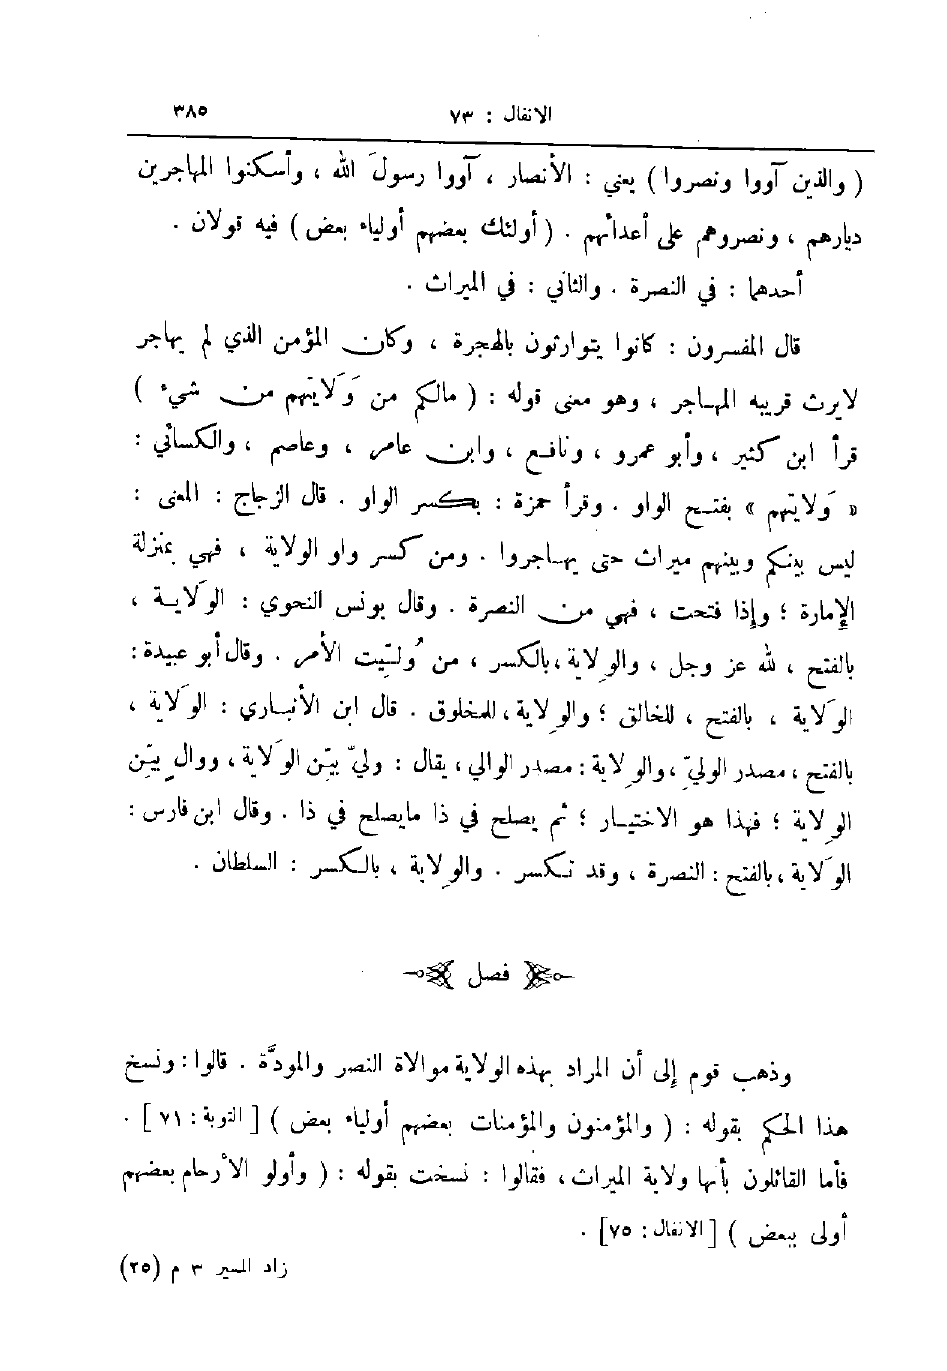 الانفال : ٧٣ ٣٨٥
( والذين آووا ونصروا ) يعني : الأنصار ، آووا رسولَ الله ، وأسكنوا المهاجرين
ديارهم ، ونصروهم على أعدائهم . ( أولئك بعضهم أولياء بعض ) فيه قولان .
أحدهما : في النصرة . والثاني : في الميراث .
قال المفسرون : كانوا يتوارثون بالهجرة ، وكان المؤمن الذي لم يهاجر
لايرث قريبه المهاجر ، وهو معنى قوله : ( مالكم من وَلايتهم من شيء )
قرأ ابن كثير ، وأبو عمرو ، ونافع ، وابن عامر ، وعاصم ، والكسائي :
« وَلايتهم » بفتح الواو . وقرأ حمزة : بكسر الواو . قال الزجاج : المعنى :
ليس بينكم وبينهم ميراث حتى يهاجروا . ومن كسر واو الولاية ، فهي بمنزلة
الإمارة ؛ وإذا فتحت ، فهي من النصرة . وقال يونس النحوي : الوَلاية ،
بالفتح ، لله عز وجل ، والوِلاية ،بالكسر ، من وُلِّيت الأمر . وقال أبو عبيدة :
الوَلاية ، بالفتح ، للخالق ؛ والوِلاية ، للمخلوق . قال ابن الأنباري : الوَلاية ،
بالفتح ، مصدر الوليِّ ، والوِلاية : مصدر الوالي ، يقال : وليّ بيِّن الوَلاية ، ووالٍ بيِّن
الوِلاية ؛ فهذا هو الاختيار ؛ ثم يصلح في ذا مايصلح في ذا . وقال ابن فارس :
الوَلاية ، بالفتح : النصرة ، وقد تكسر . والوِلاية ، بالكسر : السلطان .
فصل
وذهب قوم إلى أن المراد بهذه الولاية موالاة النصر والمودَّة . قالوا : ونسخ
هذا الحكم بقوله : ( والمؤمنون والمؤمنات بعضهم أولياء بعض ) [ التوبة : ٧١ ] .
فأما القائلون بأنها ولاية الميراث ، فقالوا : نسخت بقوله : ( وأولو الأرحام بعضهم
أولى ببعض ) [ الانفال : ٧٥ ] .
زاد المسير ٣ م (٢٥)